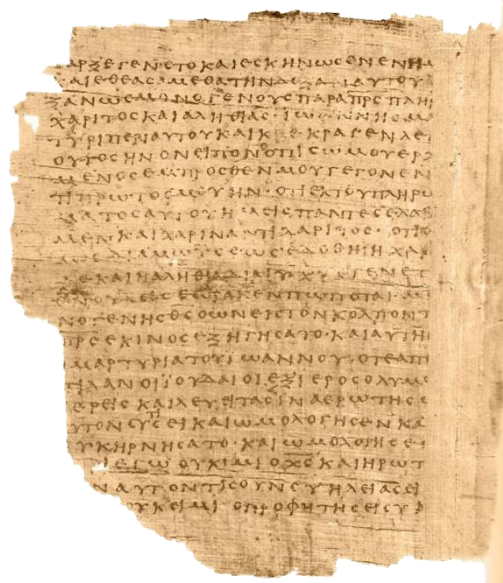 ΑΡΞΕΓΕΝΕΤΟΚΑΙΕϹΚΗΝΩϹΕΝΕΝΗΜ
ΑΙΕΘΕΑϹΑΜΕΘΑΤΗΝΔΟΞΑΝΑΥΤΟΥ
ΞΑΝΩϹΜΟΝΟΓΕΝΟΥϹΠΑΡΑΠΡϹΠΛΗ
ΧΑΡΙΤΟϹΚΑΙΑΛΗΘΙΑϹ·ΙΩΑΝΝΗϹΜΑ
ΤΥΡΙΠΕΡΙΑΥΤΟΥΚΑΙΚΕΚΡΑΓΕΝΛΕ
ΟΥΤΟϹΗΝΟΝΕΙΠΟΝΟΟΠΙϹΩΜΟΥΕΡΧ
ΜΕΝΟϹΕΜΠΡΟϹΘΕΝΜΟΥΓΕΓΟΝΕΝ
ΤΙΠΡΩΤΟϹΜΟΥΗΝ·ΟΤΙΕΚΤΟΥΠΛΗΡΩ
ΜΑΤΟϹΑΥΤΟΥΗΜΕΙϹΠΑΝΤΕϹΕΛΑΒ
ΜΕΝ·ΚΑΙΧΑΡΙΝΑΝΤΙΧΑΡΙΤΟϹ·ΟΤΙΟ
ΜΟϹΔΙΑΜΩΥϹΕΩϹΕΔΟΘΗ·ΗΧΑΡ
ΔΕΚΑΙΗΑΛΗΘΙΑΔΙΑΙΥΧΥΕΓΕΝΕΤ
ΘΝΟΥΔΕΙϹΕΩΡΑΚΕΝΠΩΠΟΤΑΙ·ΜΟ
ΝΟΓΕΝΗϹΘϹΟΩΝΕΙϹΤΟΝΚΟΛΠΟΝΤ
ΠΡϹΕΚΙΝΟϹΕΞΗΓΗϹΑΤΟ·ΚΑΙΑΥΤΗ
ΜΑΡΤΥΡΙΑΤΟΥΙΩΑΝΝΟΥ·ΟΤΕΑΠ
ΤΙΛΑΝΟΙΙΟΥΔΑΙΟΙΕΞΙΕΡΟϹΟΛΥΜ
ΕΡΕΙϹΚΑΙΛΕΥΕΙΤΑϹΙΝΑΕΡΩΤΗϹ
ΥΤΟΝϹΥΤΙϹΕΙΚΑΙΩΜΟΛΟΓΗϹΕΝΚΑ
ΥΚΗΡΝΗϹΑΤΟ·ΚΑΙΩΜΟΛΟΓΗϹΕ
ΤΙΕΓΩΟΥΧΙΜΙΟΧϹΚΑΙΗΡΩΤ
ΝΑΥΤΟΝΤΙϹΟΥΝϹΥΗΛΕΙΑϹΕΙ
ΟΥΚΕΙΜΙΟΠΡΟΦΗΤΗϹΕΙϹΥ